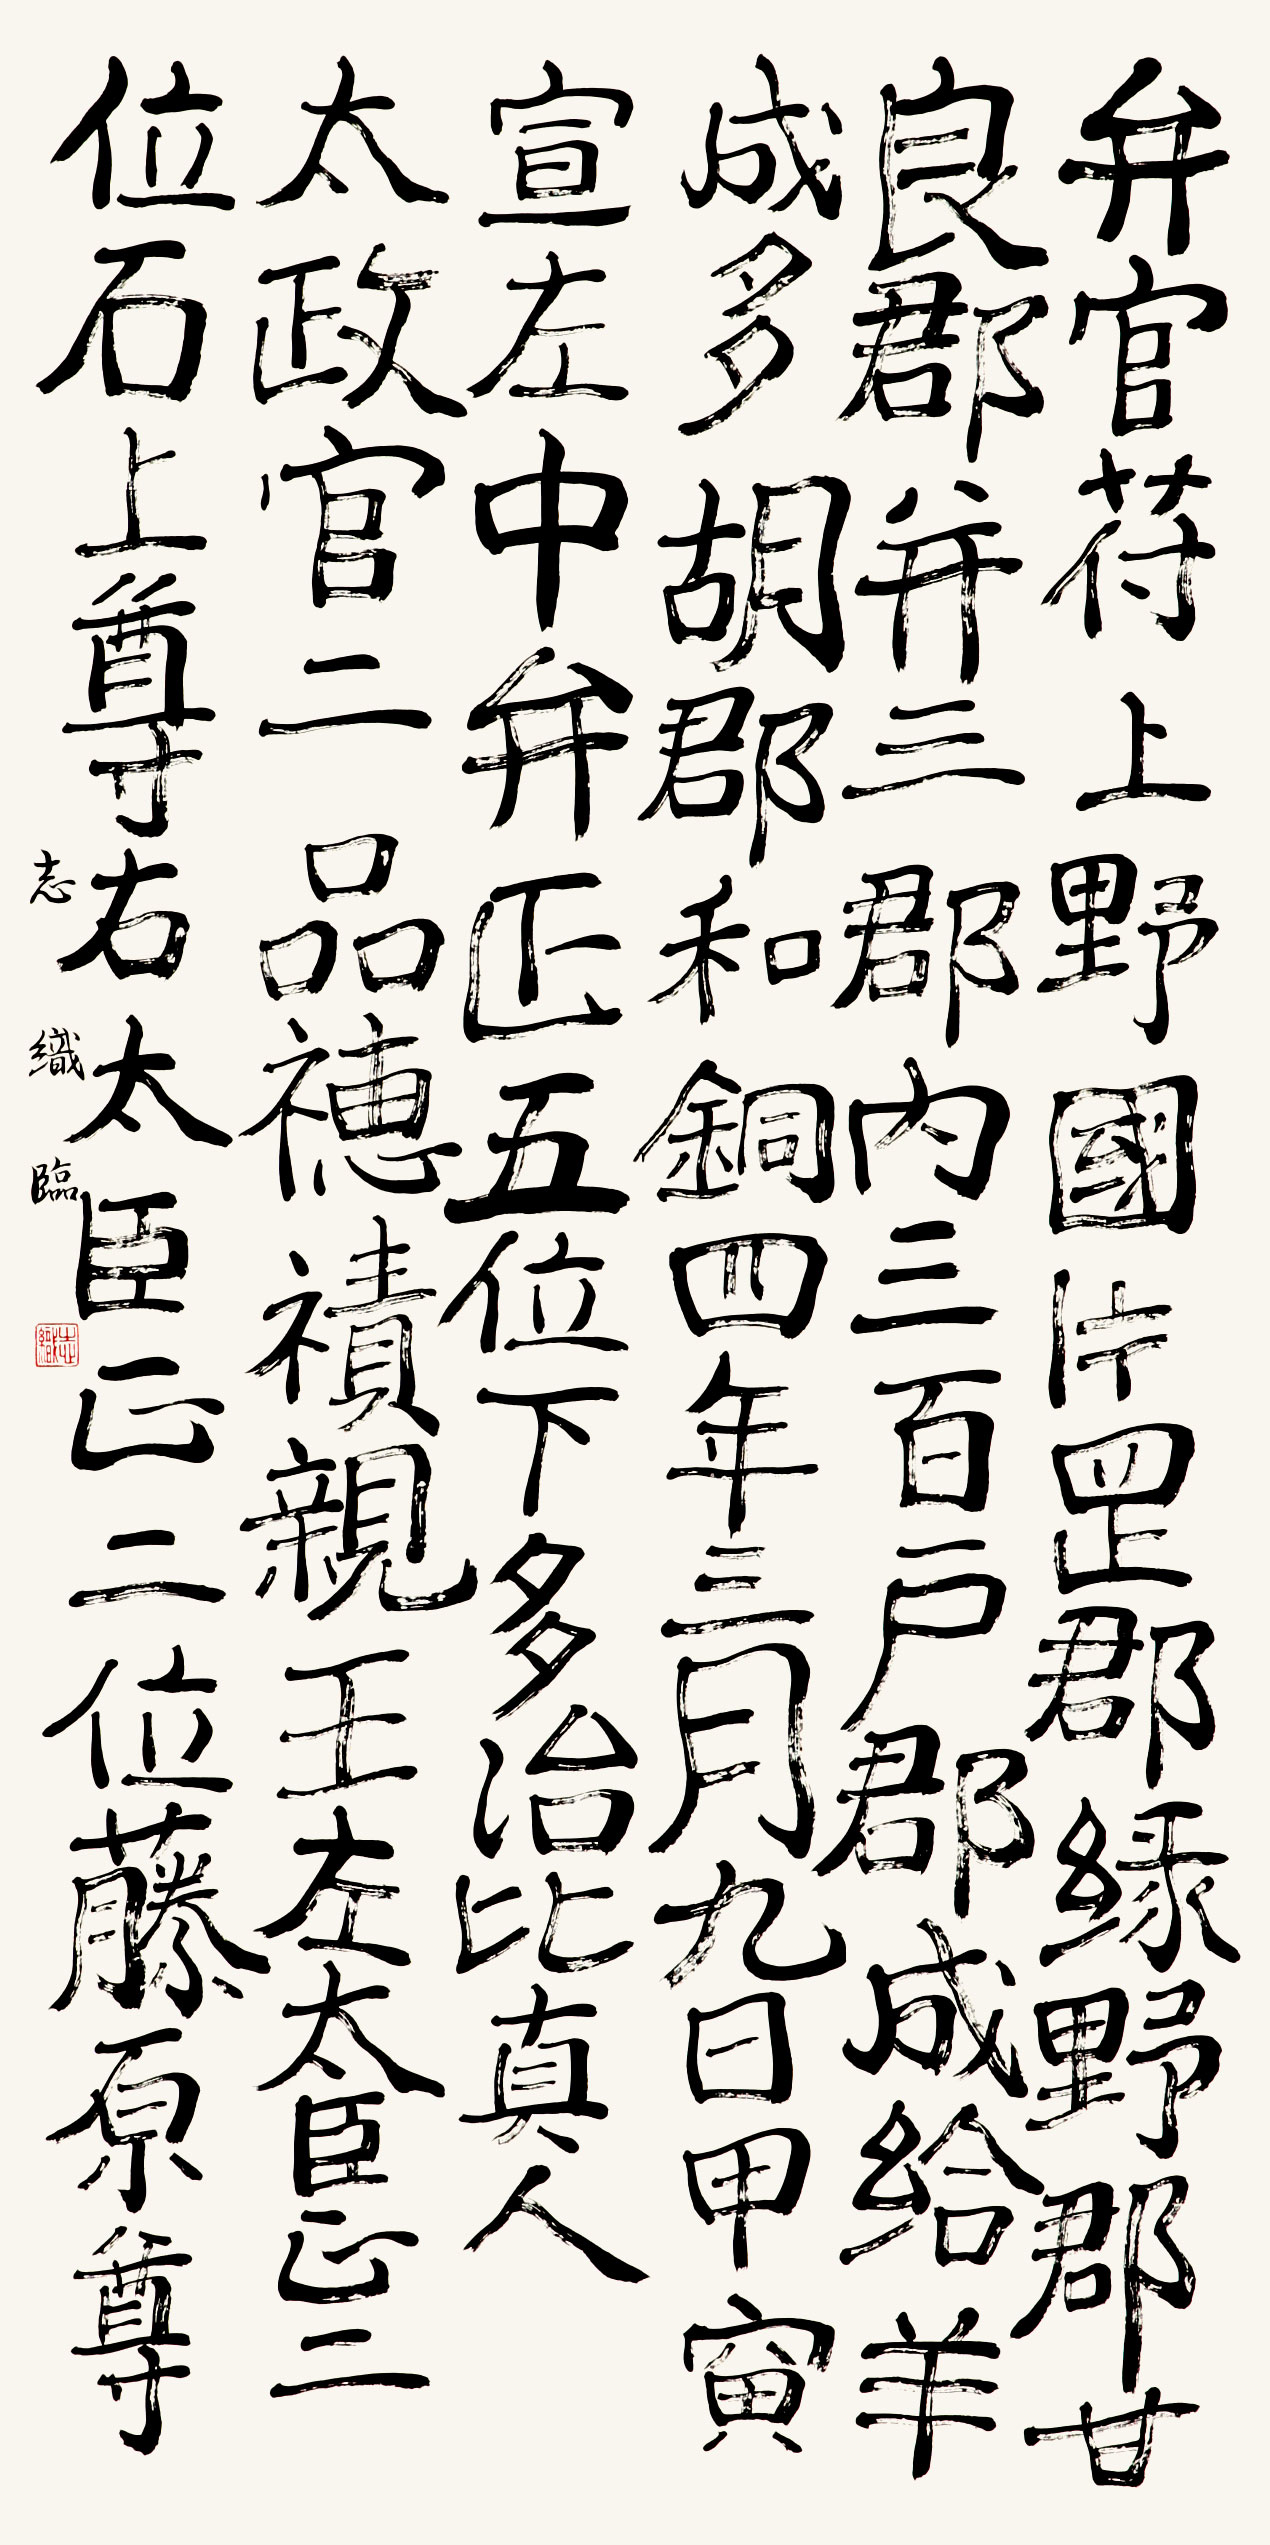 弁官苻上野國片罡郡緑野郡甘
良郡并三郡内三百戸郡成給羊
成多胡郡和銅四年三月九日甲寅
宣左中弁正五位下多治比真人
太政官二品穂積親王左太臣正二
位石上尊右太臣正二位藤原尊
志織臨
志織